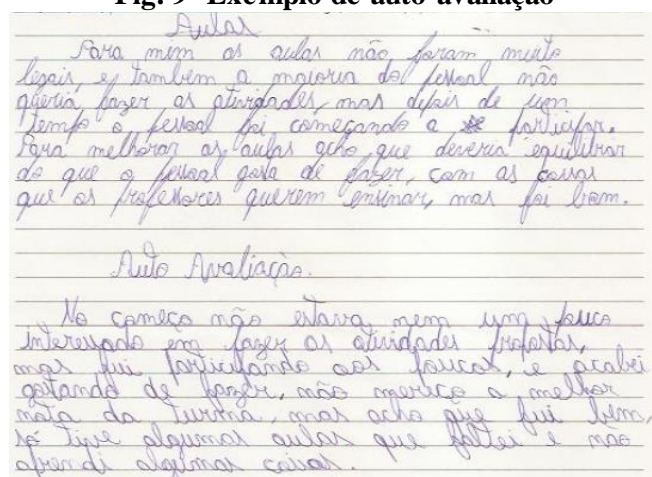 Fig. 9 Exemplo de auto-avaliação
Aulas
Para mim as aulas não foram muito
legais, e também a maioria do pessoal não
queria fazer as atividades, mas depois de um
tempo o pessoal foi começando a participar.
Para melhorar as aulas acho que deveria equilibrar
do que o pessoal gosta de fazer, com as coisas
que os professores querem ensinar, mas foi bom.
Auto Avaliação.
No começo não estava nem um pouco
interessado em fazer as atividades propostas,
mas fui participando aos poucos, e acabei
gostando de fazer, não mereço a melhor
nota da turma, mas acho que fui bem,
só tive algumas aulas que faltei e não
aprendi algumas coisas.